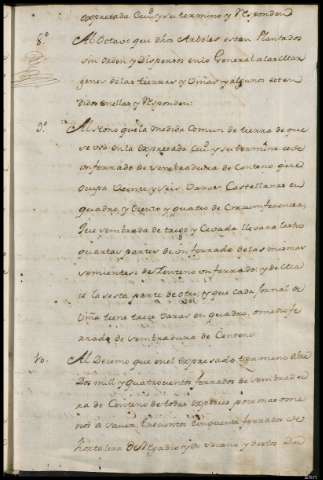 expresada Ciud y su termino y Responden
8º Al Octavo que dhos Arboles estan Plantados
sin orden y Dispersos en lo General a las Mar
genes de las tierras y Viñas y algunos esten
didos en ellas y Responden
9º Al Nono que la medida Comun de tierra de que
se usa en la Expresada Ciud y su termino es de
un ferrado de sembradura de Centeno que
Ocupa Veinte y seis Varas Castellanas en
quadro, y Ciento y quatro de Circumferencia,
Que sembrada de trigo y Cevada lleva
quartas partes de un ferrado de las mismas
simientes de Centeno un ferrado y de
la sesta parte de otro, y que cada Jornal de
Viña tiene trece Varas en quadro, o medio fe
rrado de sembradura de Centeno
10. Al Decimo que en el Expresado termino
Dos mil y quatrocientos ferrados de sembradu
ra de Centeno de todas especies poco mas o me
nos a saver trescientos Cinquenta ferrados de
hortaliza de Regadio y de secano y destos